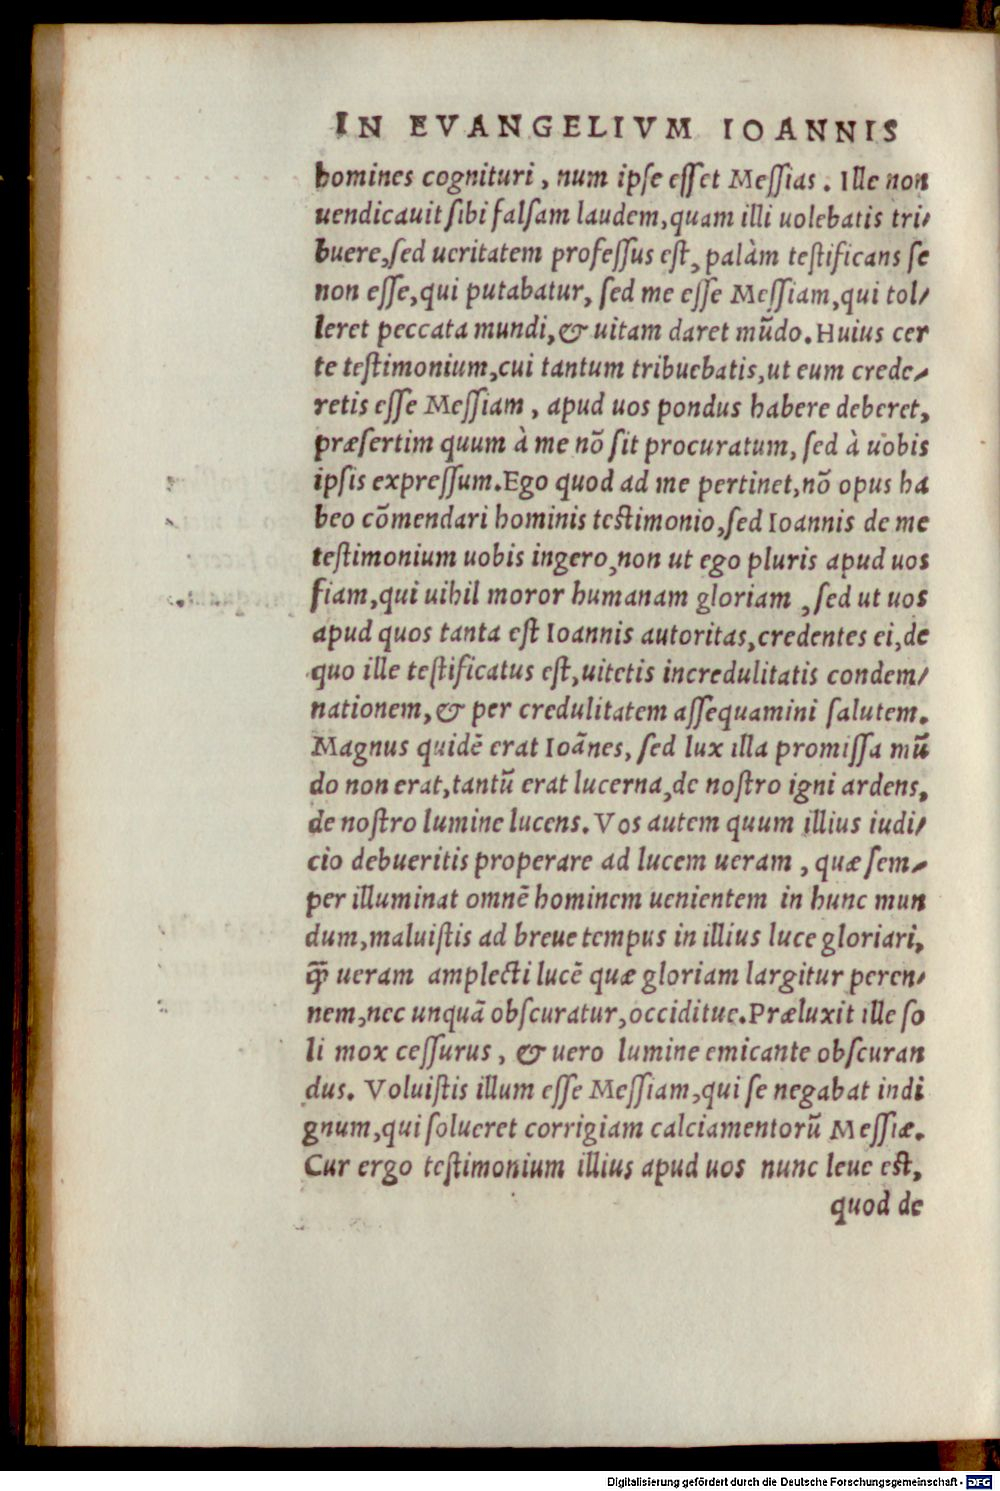 IN EVANGELIVM IOANNIS
homines cognituri, num ipse esset Messias. Ille non
uendicauit sibi falsam laudem, quam illi uolebatis tri-
buere, sed ueritatem professus est, palàm testificans se
non esse, qui putabatur, sed me esse Messiam, qui tol-
leret peccata mundi, & uitam daret mũdo. Huius cer
te testimonium, cui tantum tribuebatis, ut eum crede-
retis esse Messiam, apud uos pondus habere deberet,
præsertim quum à me nõ sit procuratum, sed à uobis
ipsis expressum. Ego quod ad me pertinet, nõ opus ha
beo cõmendari hominis testimonio, sed Ioannis de me
testimonium uobis ingero, non ut ego pluris apud uos
fiam, qui uihil moror humanam gloriam, sed ut uos
apud quos tanta est Ioannis autoritas, credentes ei, de
quo ille testificatus est, uitetis incredulitatis condem-
nationem, & per credulitatem assequamini salutem.
Magnus quidẽ erat Ioãnes, sed lux illa promissa mũ
do non erat, tantũ erat lucerna, de nostro igni ardens,
de nostro lumine lucens. Vos autem quum illius iudi-
cio debueritis properare ad lucem ueram, quæ sem-
per illuminat omnẽ hominem uenientem in hunc mun
dum, maluistis ad breue tempus in illius luce gloriari,
q̃ ueram amplecti lucẽ quæ gloriam largitur peren-
nem, nec unquã obscuratur, occiditue. Præluxit ille so
li mox cessurus, & uero lumine emicante obscuran
dus. Voluistis illum esse Messiam, qui se negabat indi
gnum, qui solueret corrigiam calciamentorũ Messiæ.
Cur ergo testimonium illius apud uos nunc leue est,
quod de
Digitalisierung gefördert durch die Deutsche Forschungsgemeinschaft - DFG